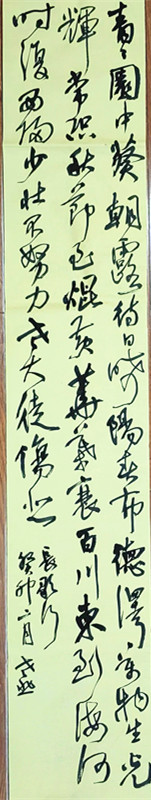 青々園中葵朝露待日晞陽春布德澤萬物生光
輝常恐秋節至焜黄華葉衰百川東到海何
時復西歸少壯不努力老大徒傷悲
長歌行
癸卯月